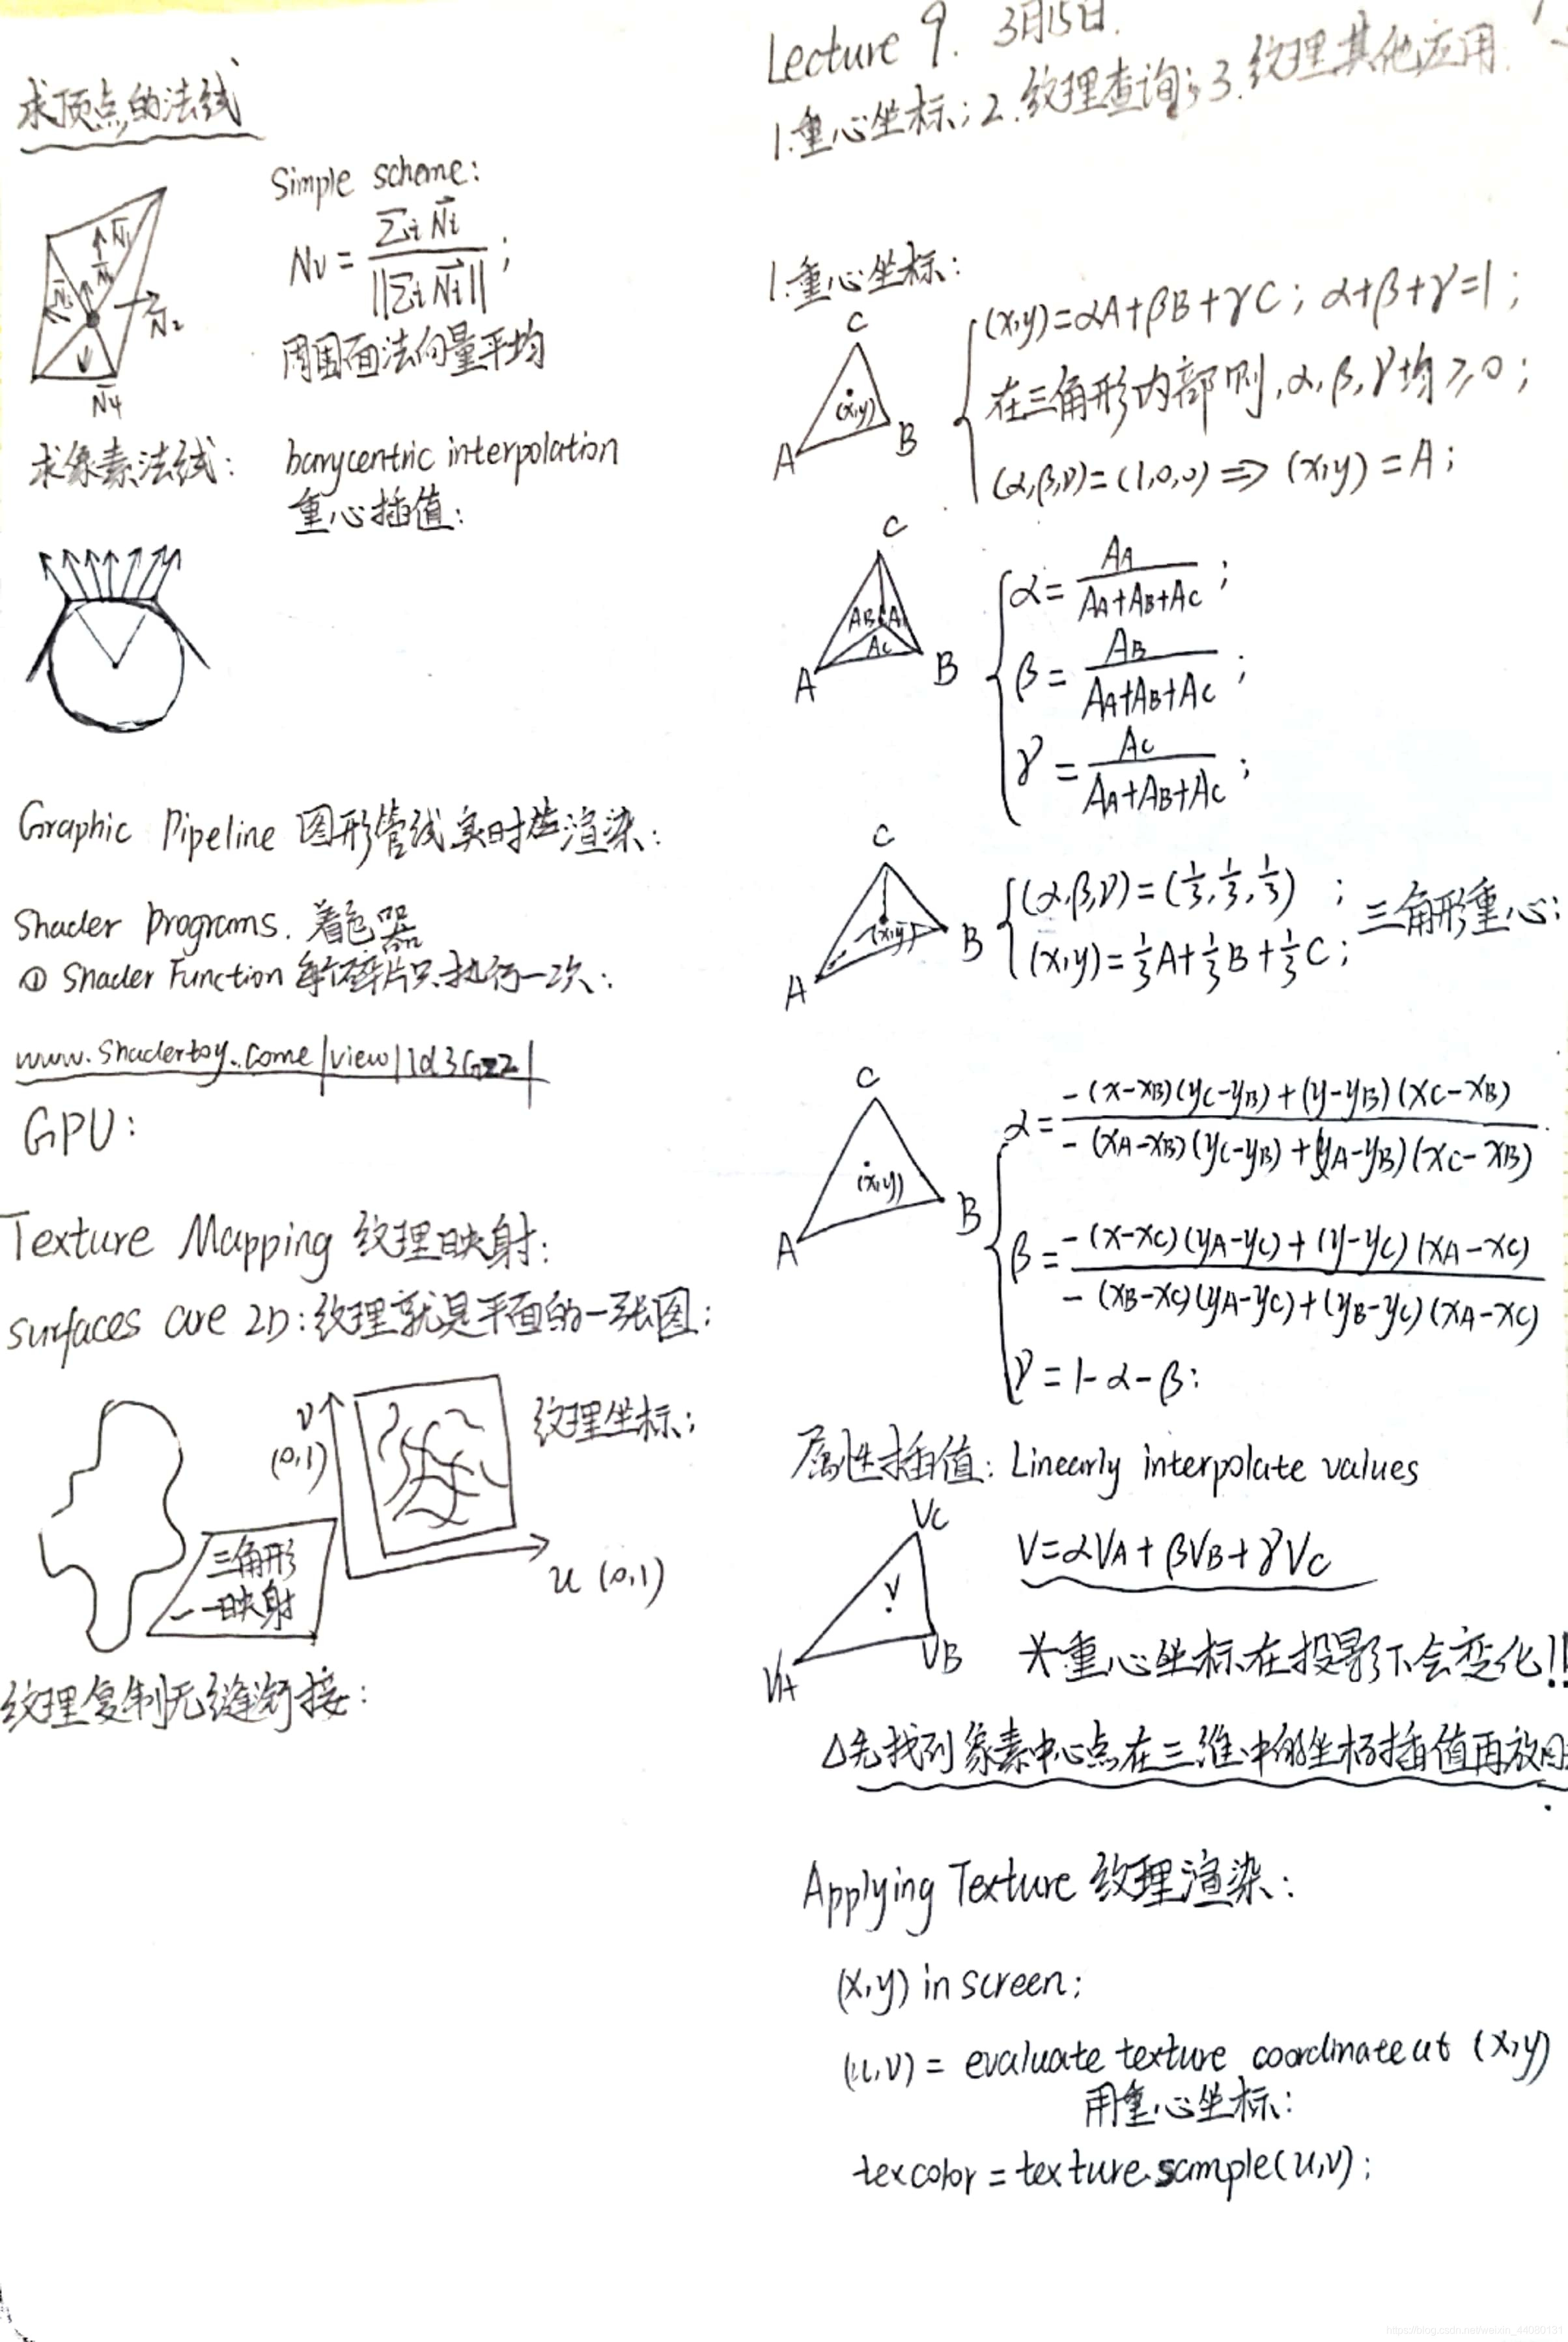 求顶点的法线
Simple scheme:
Nv = Σi Ni / ||Σi Ni|| ;
周围面法向量平均
N1
N2
N4
求像素法线: barycentric interpolation
重心插值:
Graphic Pipeline 图形管线 实时渲染:
Shader Programs. 着色器
① Shader Function 每个碎片只执行一次:
www.Shadertoy.come/view/ld3Gzz/
GPU:
Texture Mapping 纹理映射:
surfaces are 2D: 纹理就是平面的一张图:
v
(0,1)
纹理坐标;
u (0,1)
三角形
一一映射
纹理复制无缝衔接:
Lecture 9. 3月15日.
1.重心坐标; 2.纹理查询; 3.纹理其他应用.
1.重心坐标:
C
(x,y)
A
B
(x,y)=αA+βB+γC; α+β+γ=1;
在三角形内部则,α,β,γ均≥0;
(α,β,γ)=(1,0,0) ⇒ (x,y)=A;
C
AB
AC
A
B
α = AA / AA+AB+AC ;
β = AB / AA+AB+AC ;
γ = AC / AA+AB+AC ;
C
(x,y)
A
B
(α,β,γ)=(1/3,1/3,1/3) ; 三角形重心;
(x,y)=1/3A+1/3B+1/3C;
C
(x,y)
A
B
α = -(x-xB)(yC-yB)+(y-yB)(xC-xB) / -(xA-xB)(yC-yB)+(yA-yB)(xC-xB)
β = -(x-xC)(yA-yC)+(y-yC)(xA-xC) / -(xB-xC)(yA-yC)+(yB-yC)(xA-xC)
γ = 1-α-β:
属性插值: Linearly interpolate values
VC
V
VA
VB
V=αVA+βVB+γVC
*重心坐标在投影下会变化!!
△先找到象素中心点在三维中的坐标插值再放回
Applying Texture 纹理渲染:
(x,y) in screen;
(u,v) = evaluate texture coordinate at (x,y)
用重心坐标:
texcolor = texture.sample(u,v);
https://blog.csdn.net/weixin_44080131